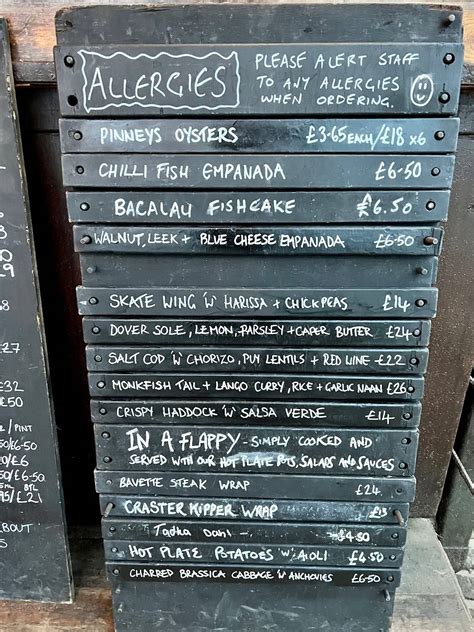 ALLERGIES
PLEASE ALERT STAFF
TO ANY ALLERGIES
WHEN ORDERING.
PINNEYS OYSTERS £3-65 EACH/£18 x6
CHILLI FISH EMPANADA £6-50
BACALAU FISHCAKE £6.50
WALNUT, LEEK + BLUE CHEESE EMPANADA £6-50
SKATE WING 'W' HARISSA + CHICKPEAS £14
DOVER SOLE, LEMON, PARSLEY + CAPER BUTTER £24
SALT COD 'W' CHORIZO, PUY LENTILS + RED WINE - £22
MONKFISH TAIL + LANGO CURRY, RICE + GARLIC NAAN £26
CRISPY HADDOCK 'W' SALSA VERDE £14
IN A FLAPPY - SIMPLY COOKED AND
SERVED WITH OUR HOT PLATE POTS, SALADS AND SAUCES
BAVETTE STEAK WRAP £24
CRASTER KIPPER WRAP £13
Tadka Dahl - £4.50
HOT PLATE POTATOES 'W' AIOLI £4.50
CHARRED BRASSICA CABBAGE 'W' ANCHOVIES £6-50
£27
£32
£50
/ PINT
BTL
ABOUT